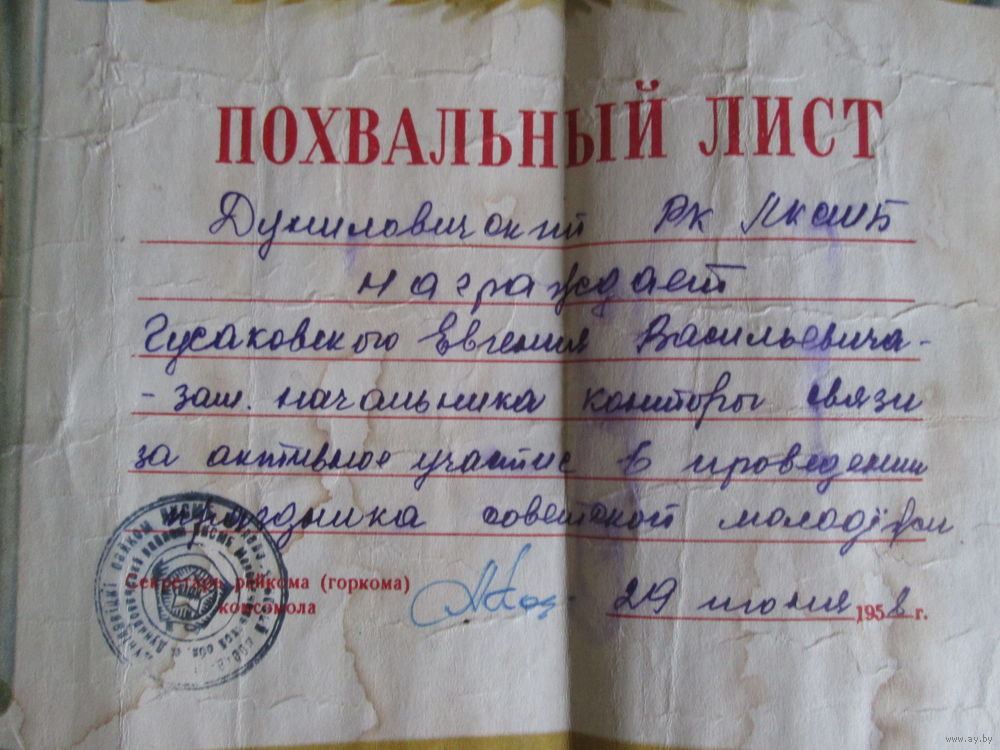 ПОХВАЛЬНЫЙ ЛИСТ
Дуниловичский РК ЛКСМБ
награждает
Гусаковского Евгения Васильевича -
- зам. начальника конторы связи
за активное участие в проведении
праздника советской молодёжи
Секретарь райкома (горкома)
комсомола
29 июня 1958 г.
www.ay.by